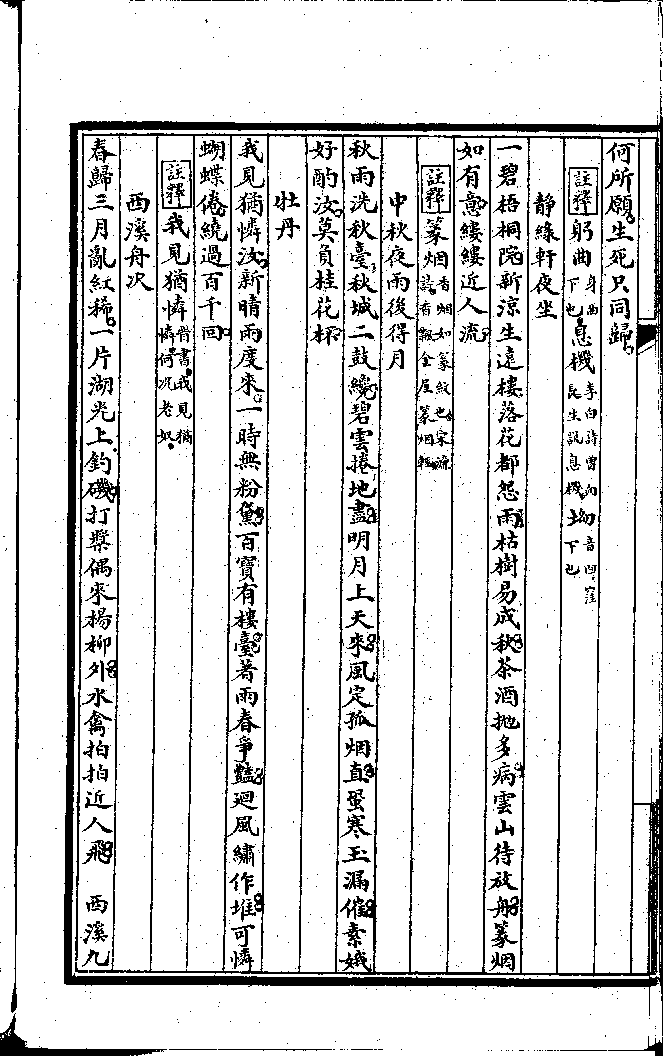 何所願生死只同歸
註釋 躬曲身曲下也息機李白詩曾向長生訊息機坳坳音凹窪下也
静緣軒夜坐
一碧梧桐院新涼生遠樓落花都怨雨枯樹易成秋茶酒抛多病雲山待放船篆烟
如有意縷縷近人流
註釋 篆烟香烟如篆紋也宋流詩香散金屋篆烟輕
中秋夜雨後得月
秋雨洗秋臺秋城二鼓纔碧雲捲地盡明月上天來風定孤烟直蛩寒玉漏催素娥
好酌汝莫負桂花杯
牡丹
我見猶憐汝新晴雨度來一時無粉黛百寶有樓臺著雨春爭豔廻風繡作堆可憐
蝴蝶倦繞過百千回
註釋 我見猶憐晉書我見猶憐何況老奴
西溪舟次
春歸三月亂紅稀一片湖光上釣磯打槳偶來楊柳外水禽拍拍近人飛 西溪九